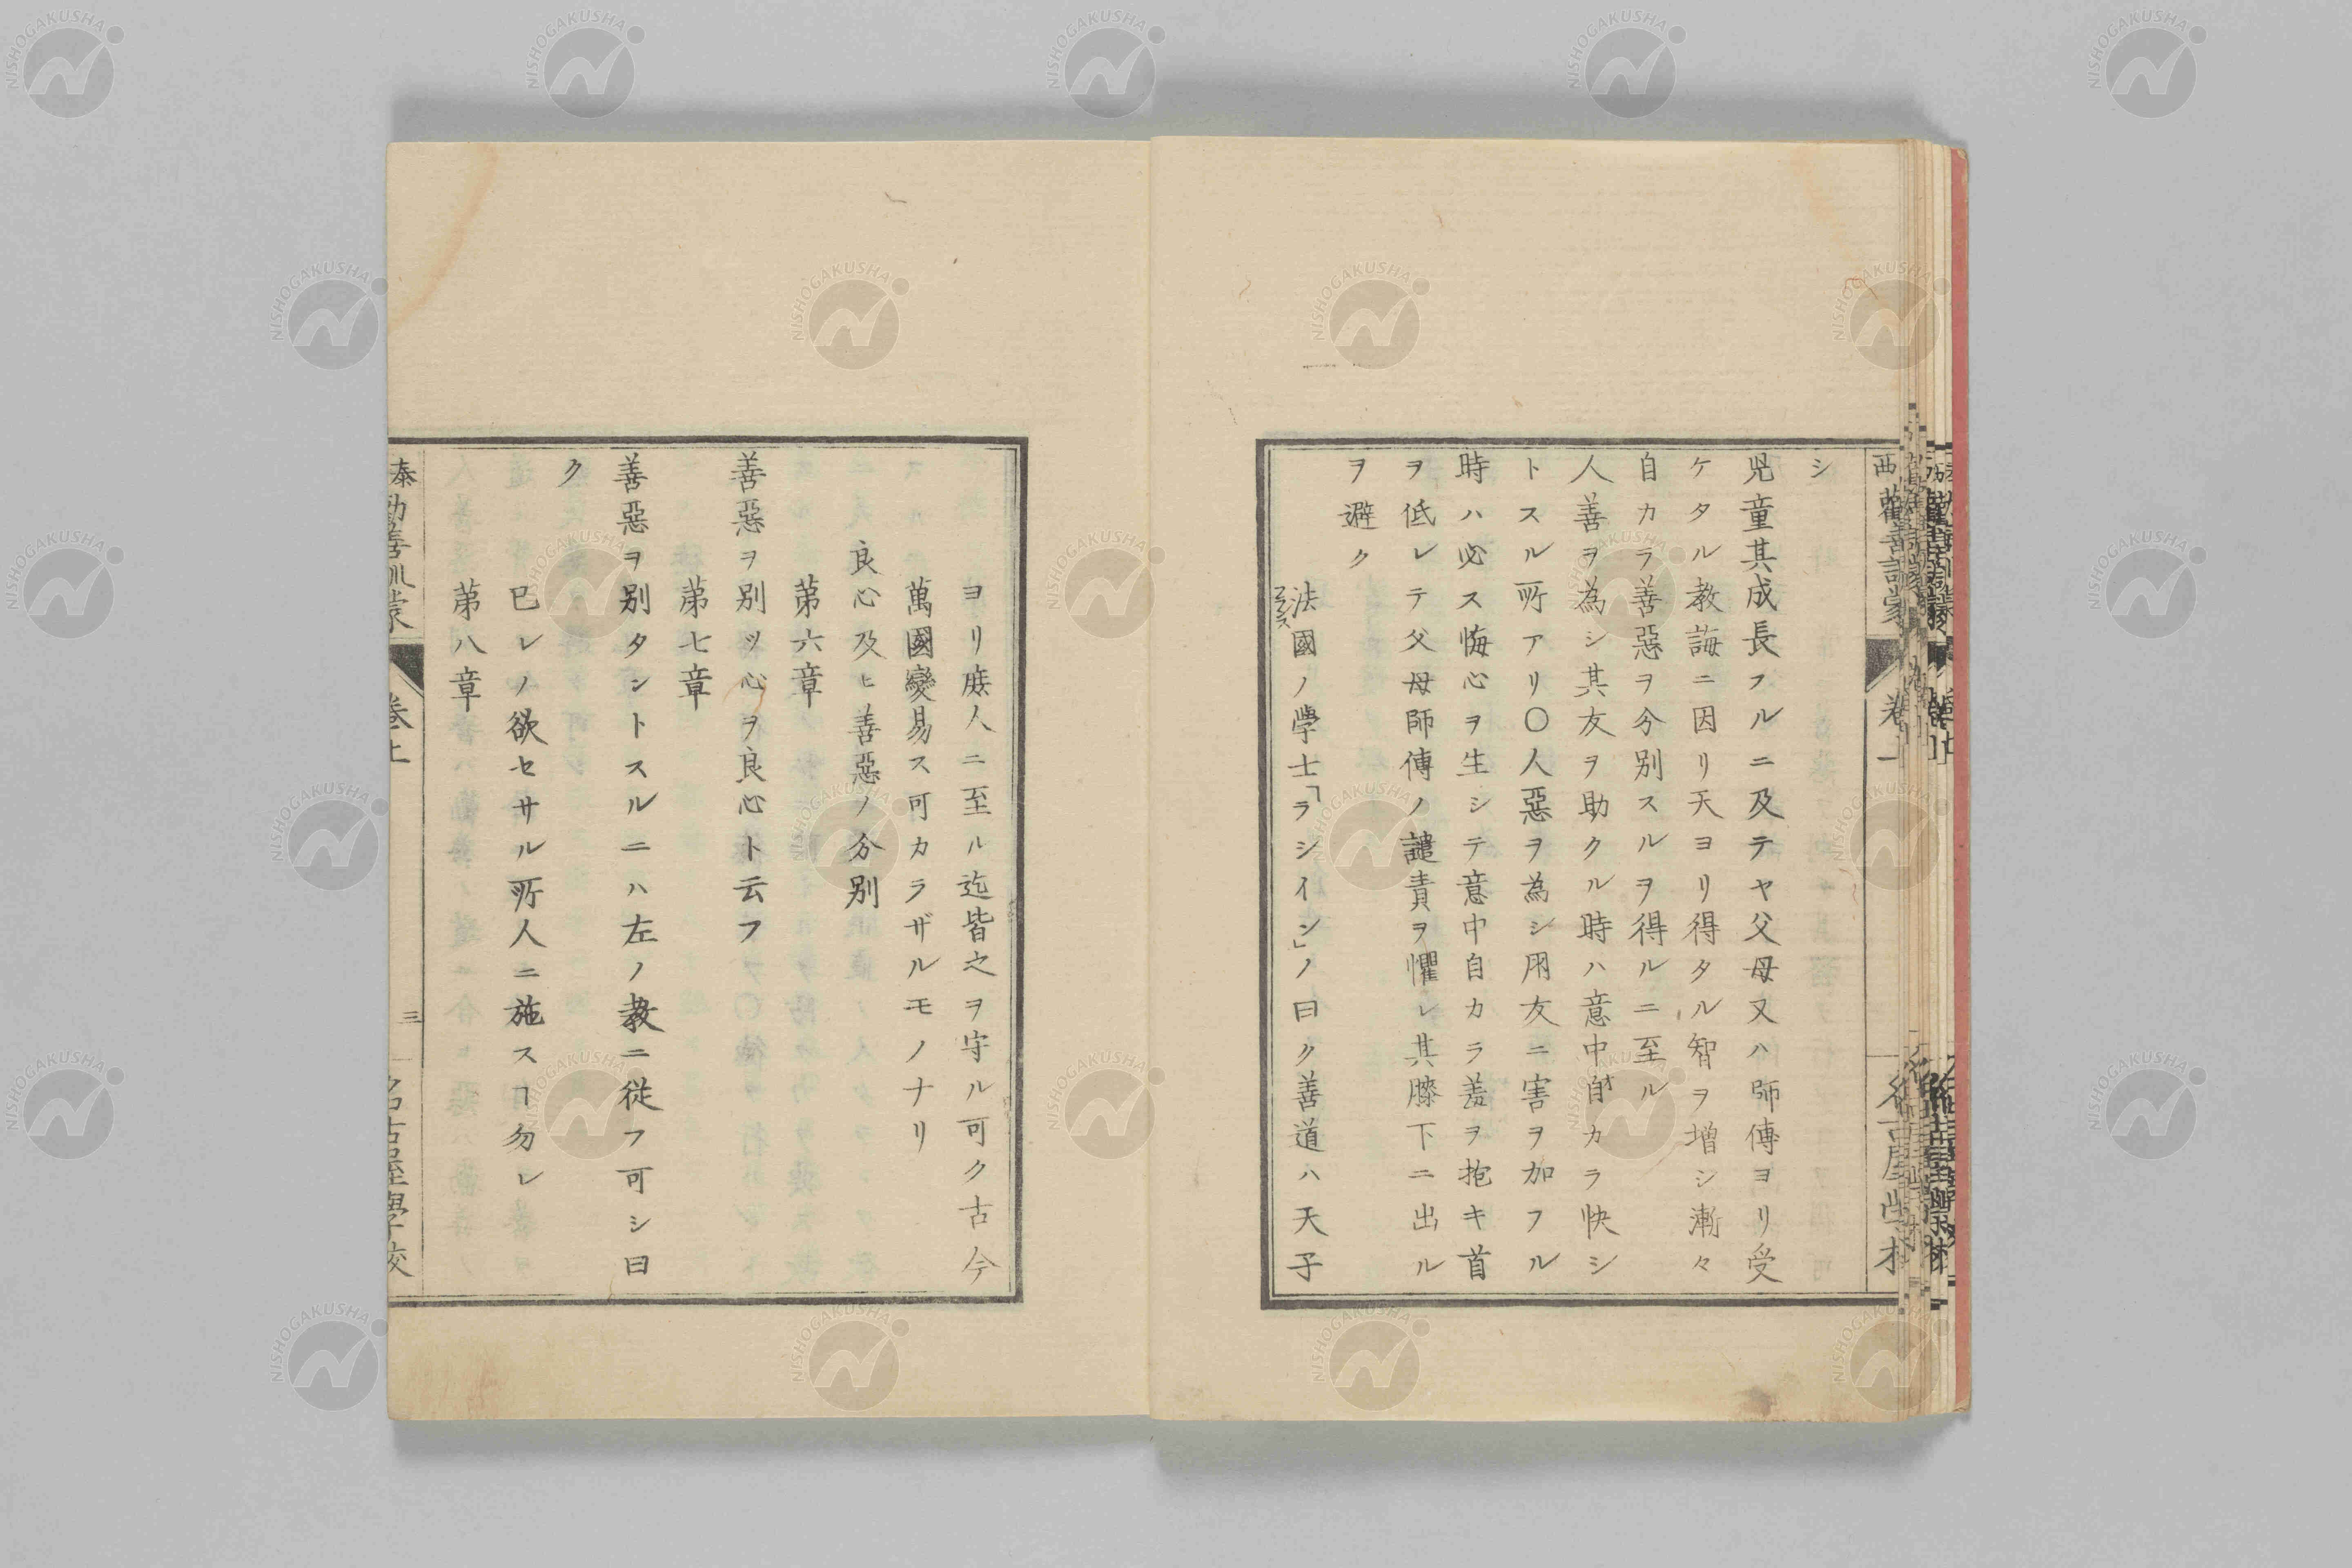 シ
児童其成長フルニ及テヤ父母又ハ師傳ヨリ受
ケタル教誨ニ因リ天ヨリ得タル智ヲ増シ漸々
自カラ善惡ヲ分別スルヲ得ルニ至ル
人善ヲ為シ其友ヲ助クル時ハ意中自カラ快シ
トスル所アリ〇人惡ヲ為シ朋友ニ害ヲ加フル
時ハ必ス悔心ヲ生シテ意中自カラ羞ヲ抱キ首
ヲ低レテ父母師傳ノ譴責ヲ懼レ其膝下ニ出ル
ヲ避ク
法國ノ學士「ラシイン」ノ曰ク善道ハ天子
ヨリ庶人ニ至ル迄皆之ヲ守ル可ク古今
萬國變易ス可カラザルモノナリ
良心及ヒ善惡ノ分別
第六章
善惡ヲ別ツ心ヲ良心ト云フ
第七章
善惡ヲ別タントスルニハ左ノ教ニ従フ可シ曰
ク
已レノ欲セサル所人ニ施スヿ勿レ
第八章
泰 勸善訓蒙 巻上 三 名古屋學校
NISHOGAKUSHA